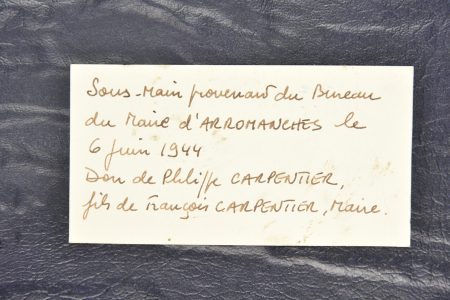 Sous-Main provenant du Bureau
du Maire d'ARROMANCHES le
6 Juin 1944
Don de Philippe CARPENTIER,
fils de François CARPENTIER, Maire.